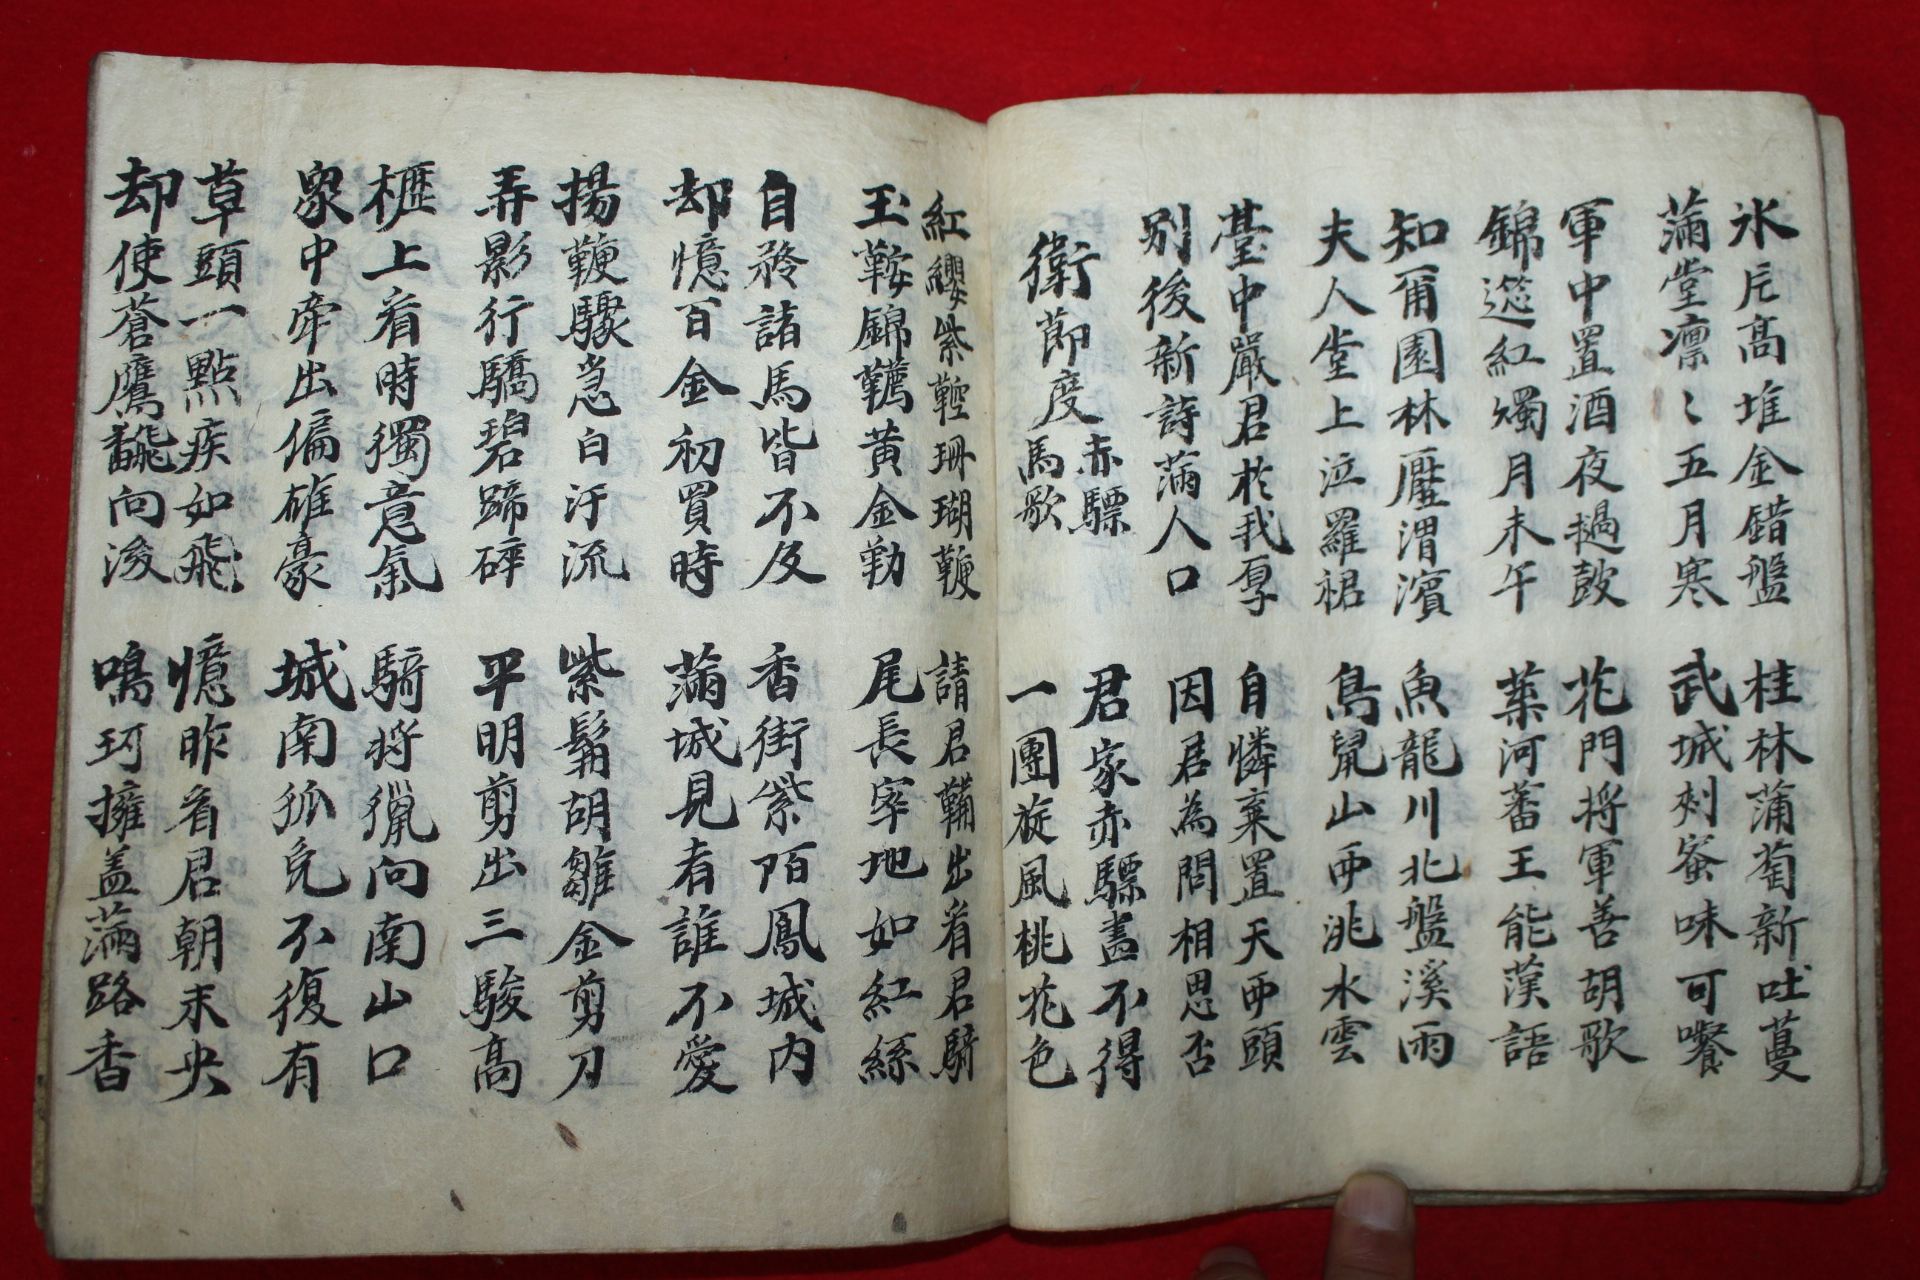 氷片高堆金錯盤 桂林蒲萄新吐蔓
滿堂凛〻五月寒 武城刺蜜味可嚽
軍中置酒夜撾鼓 花門將軍善胡歌
錦筵紅燭月未午 葉河蕃王能漢語
知爾園林壓渭濱 魚龍川北盤溪雨
夫人堂上泣羅裙 鳥鼠山西洮水雲
臺中嚴君於我厚 自憐棄置天西頭
別後新詩滿人口 因君為問相思否
衛節度赤驃馬歌 君家赤驃畫不得
一團旋風桃花色
紅纓紫鞚珊瑚鞭 請君鞴出看君騎
玉鞍錦韉黃金勒 尾長窣地如紅絲
自矜諸馬皆不及 香街紫陌鳳城內
却憶百金初買時 滿城見者誰不愛
揚鞭驟急白汗流 紫髯胡雛金剪刀
弄影行驕碧蹄碎 平明剪出三駿高
櫪上看時獨意氣 騎將獵向南山口
衆中牽出偏雄豪 城南狐兔不復有
草頭一點疾如飛 憶昨看君朝未央
却使蒼鷹飜向後 鳴珂擁盖滿路香